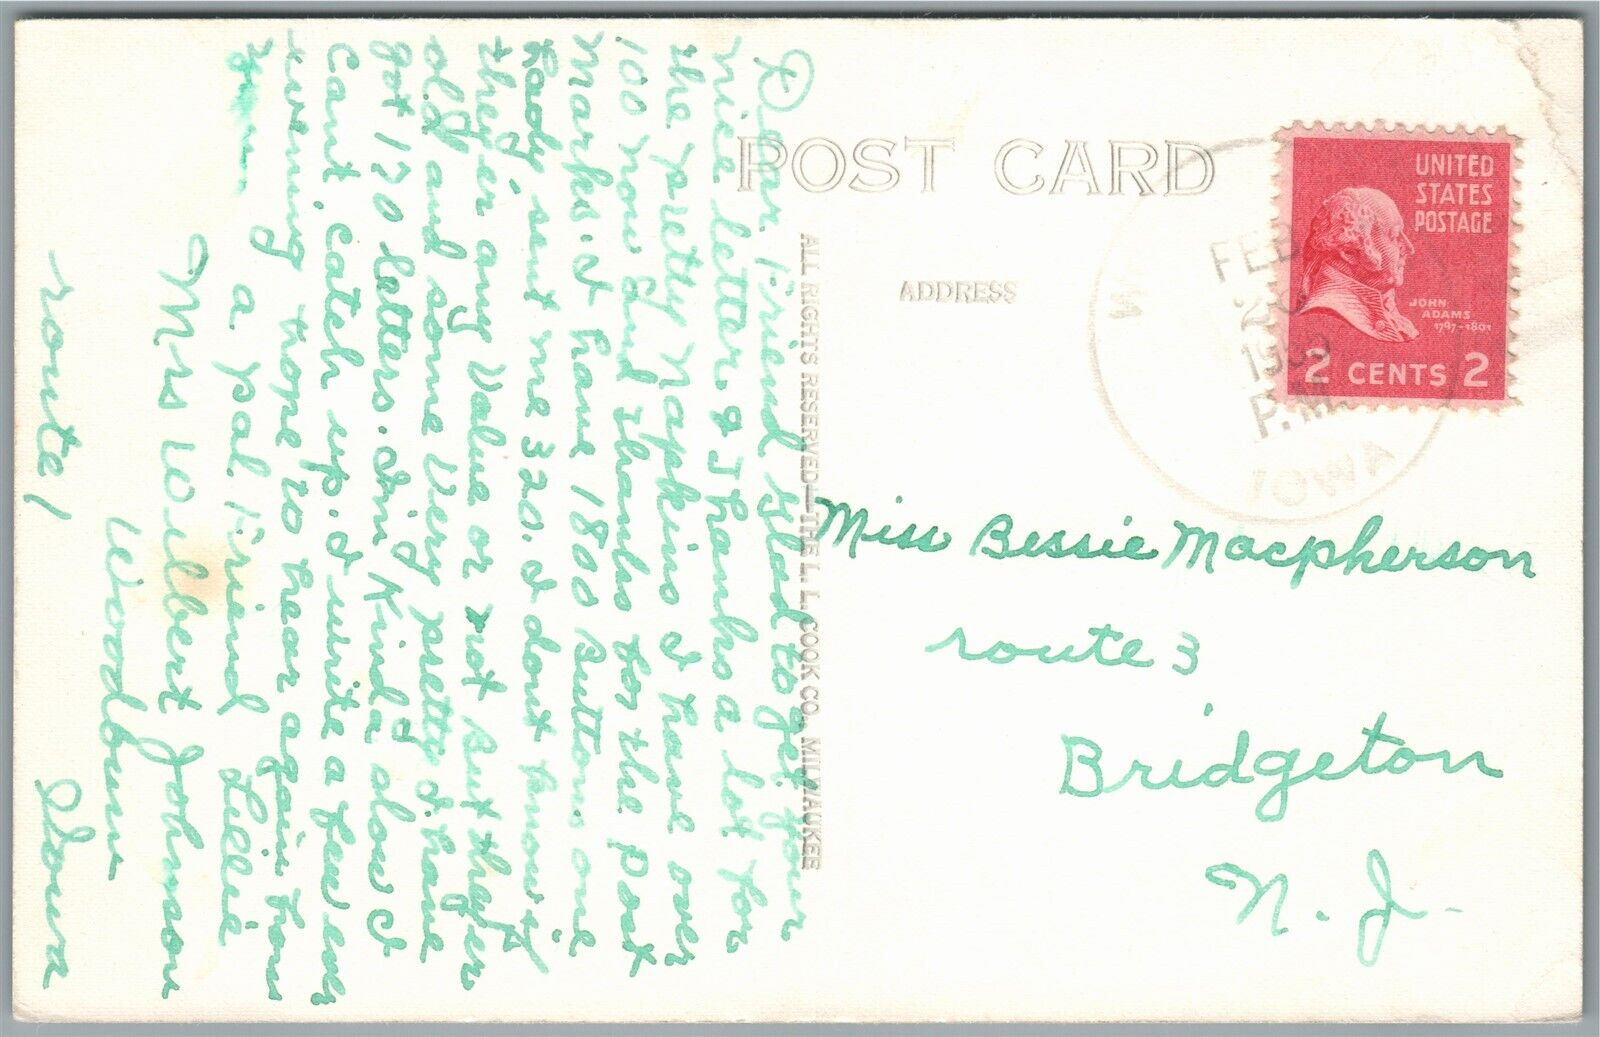 Dear Friend Glad to get your
nice letter. & Thanks a lot for
the pretty Napkins I have over
100 now and thanks for the post
Marks. I have 1800 Buttons one
Lady sent me 320. I dont know if
they er any Value or not But they er
old and some Very pretty I have
got 170 letters. Im Kinda slow I
Cant catch up. I write a few ever
evening hope to hear again from
you
a pal Friend Lillie
Mrs Wilbert Johnson
Woodburn
route 1 Iowa
POST CARD
ADDRESS
ALL RIGHTS RESERVED—THE L. L. COOK CO., MILWAUKEE
UNITED
STATES
POSTAGE
JOHN
ADAMS
1797-1801
2 CENTS 2
FEB
20
P.M.
IOWA
Miss Bessie Macpherson
route 3
Bridgeton
N. J.